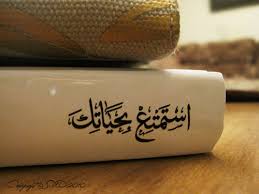 اسْتَمْتِعْ بِحَيَاتِكَ